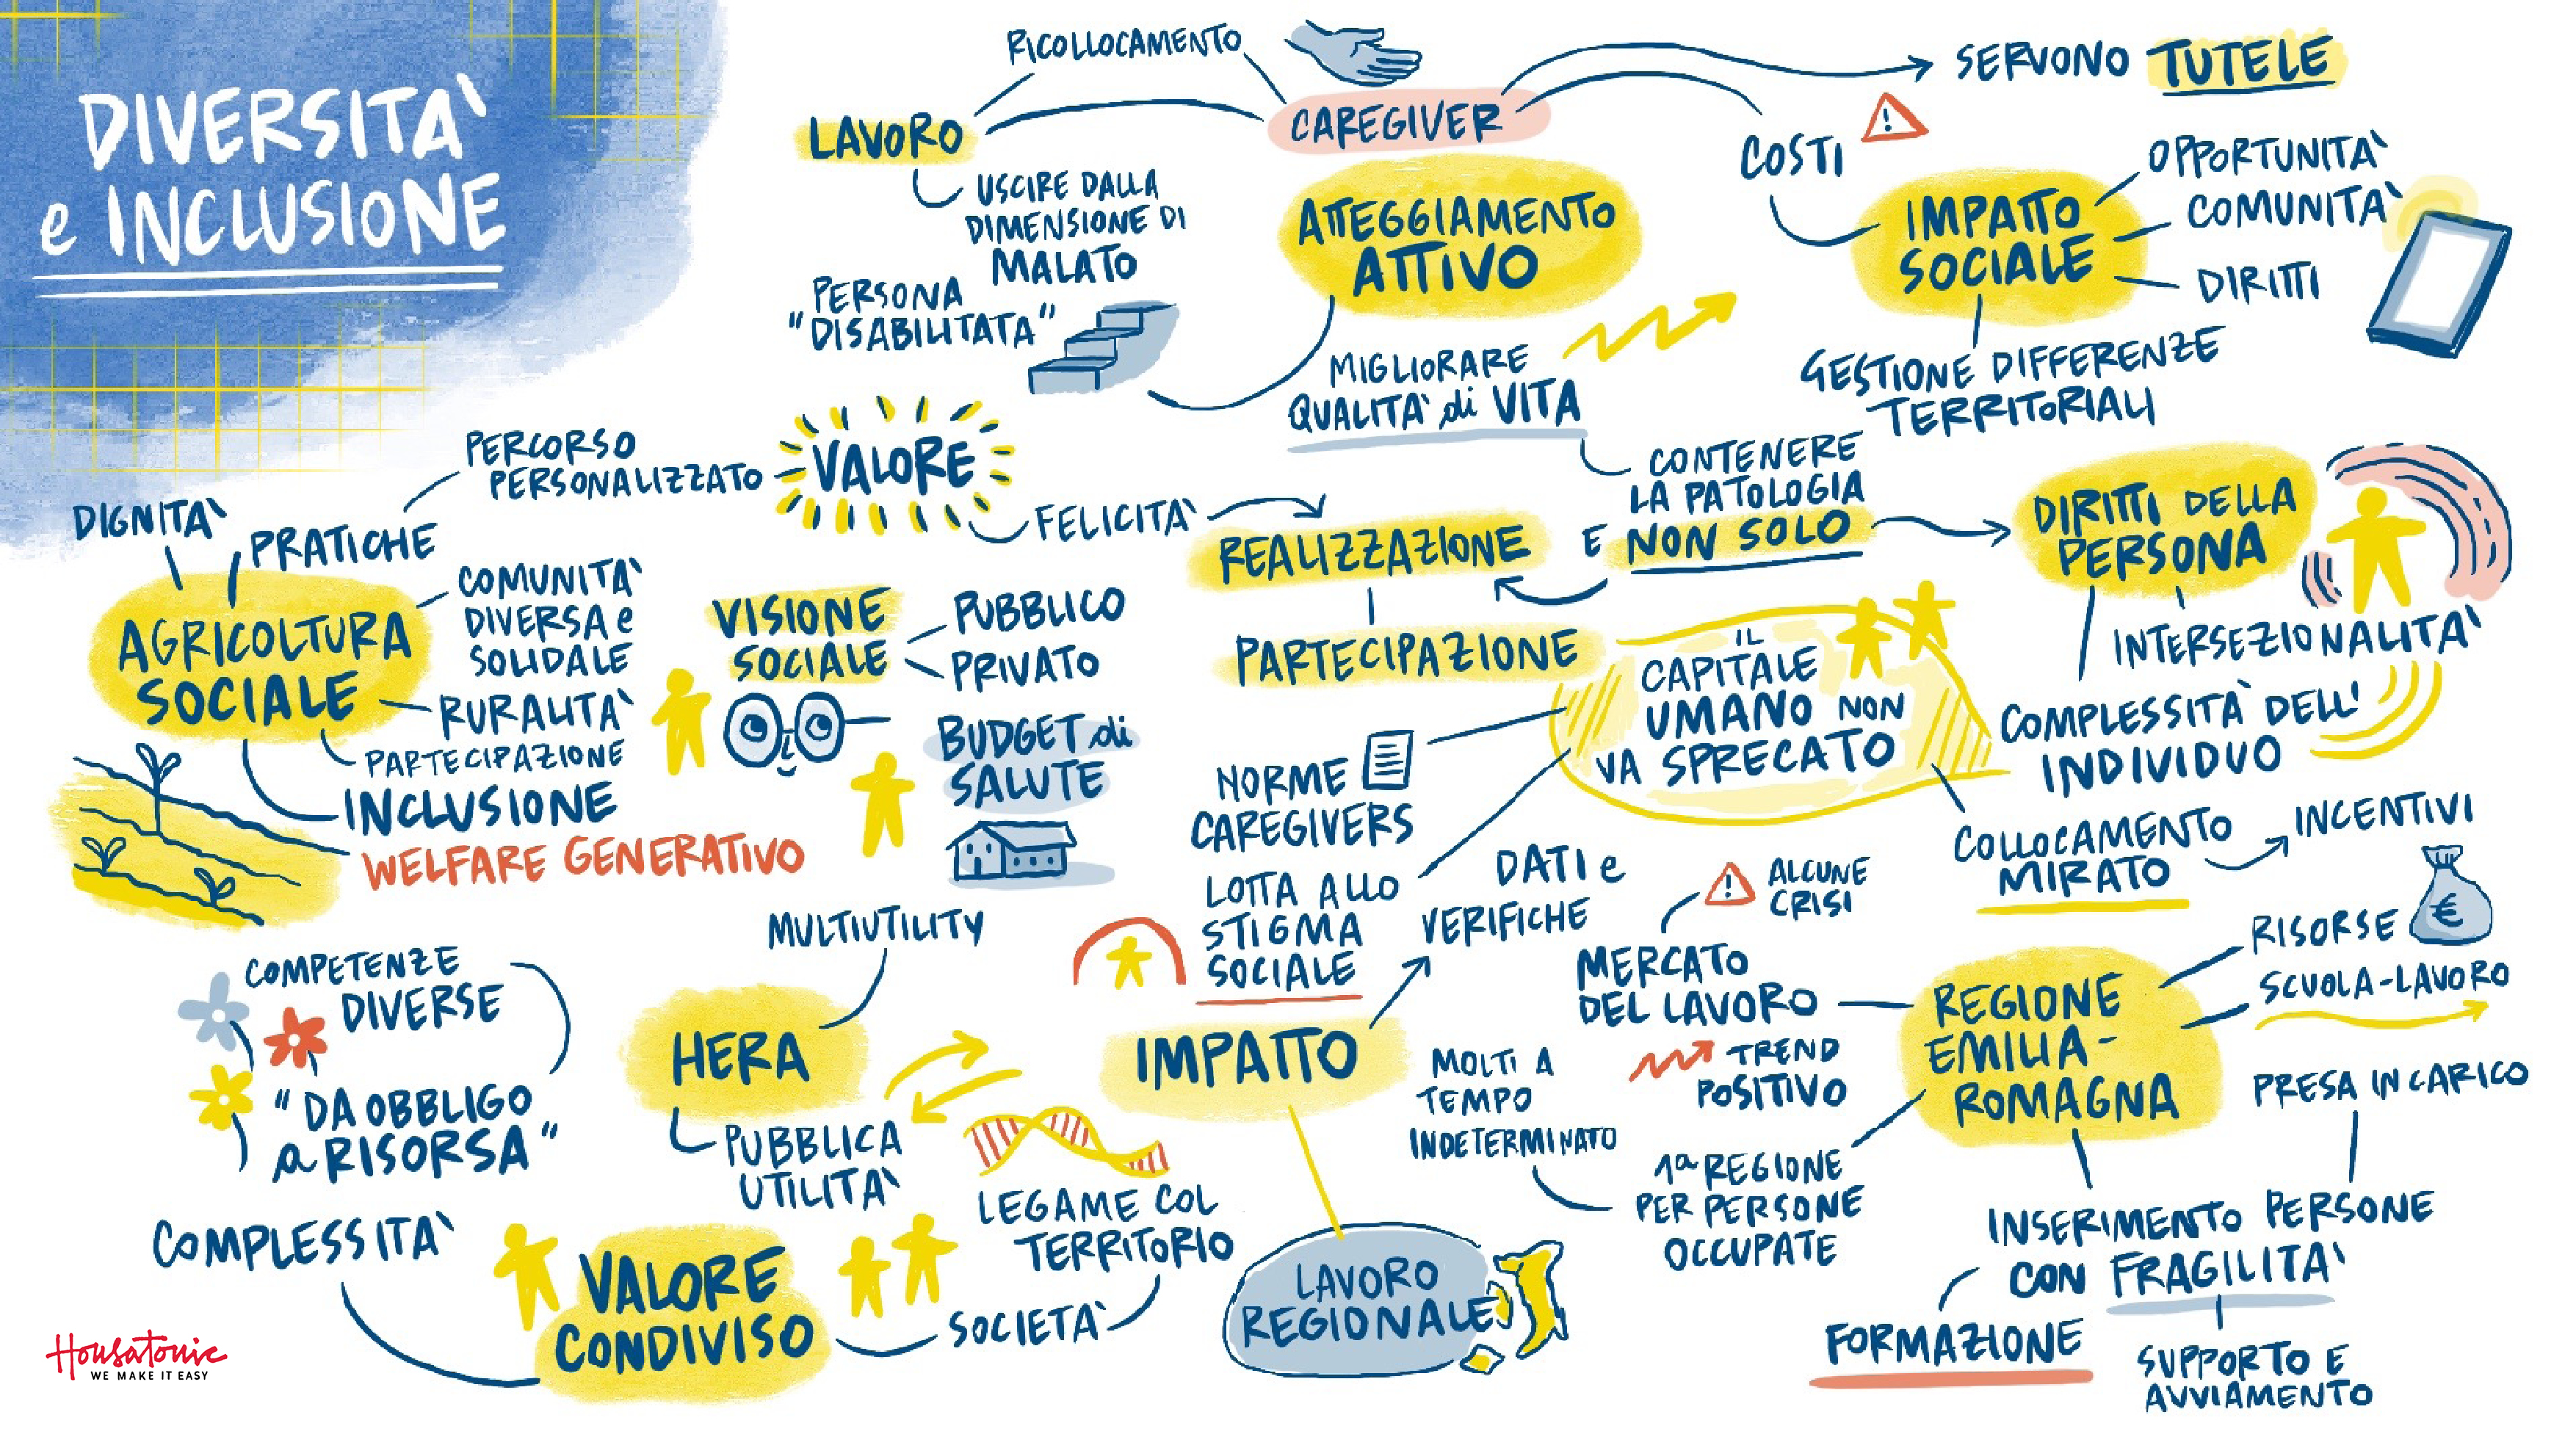 DIVERSITA'
e INCLUSIONE
RICOLLOCAMENTO
LAVORO
CAREGIVER
SERVONO TUTELE
COSTI
USCIRE DALLA
DIMENSIONE DI
MALATO
PERSONA
"DISABILITATA"
ATTEGGIAMENTO
ATTIVO
IMPATTO
SOCIALE
OPPORTUNITA'
COMUNITA'
DIRITTI
GESTIONE DIFFERENZE
TERRITORIALI
MIGLIORARE
QUALITA' di VITA
CONTENERE
LA PATOLOGIA
E NON SOLO
DIRITTI DELLA
PERSONA
INTERSEZIONALITA'
COMPLESSITA' DELL'
INDIVIDUO
PERCORSO
PERSONALIZZATO
VALORE
FELICITA'
REALIZZAZIONE
PARTECIPAZIONE
DIGNITA'
PRATICHE
AGRICOLTURA
SOCIALE
COMUNITA'
DIVERSA e
SOLIDALE
RURALITA'
PARTECIPAZIONE
INCLUSIONE
WELFARE GENERATIVO
VISIONE
SOCIALE
PUBBLICO
PRIVATO
BUDGET di
SALUTE
IL
CAPITALE
UMANO NON
VA SPRECATO
NORME
CAREGIVERS
LOTTA ALLO
STIGMA
SOCIALE
COLLOCAMENTO
MIRATO
INCENTIVI
DATI e
VERIFICHE
ALCUNE
CRISI
MERCATO
DEL LAVORO
TREND
POSITIVO
REGIONE
EMILIA-
ROMAGNA
RISORSE
€
SCUOLA-LAVORO
PRESA IN CARICO
MOLTI A
TEMPO
INDETERMINATO
1a REGIONE
PER PERSONE
OCCUPATE
INSERIMENTO PERSONE
CON FRAGILITA'
FORMAZIONE
SUPPORTO E
AVVIAMENTO
COMPETENZE
DIVERSE
"DA OBBLIGO
a RISORSA"
MULTIUTILITY
HERA
PUBBLICA
UTILITA'
IMPATTO
LEGAME COL
TERRITORIO
COMPLESSITA'
VALORE
CONDIVISO
SOCIETA'
LAVORO
REGIONALE
Housatonic
WE MAKE IT EASY